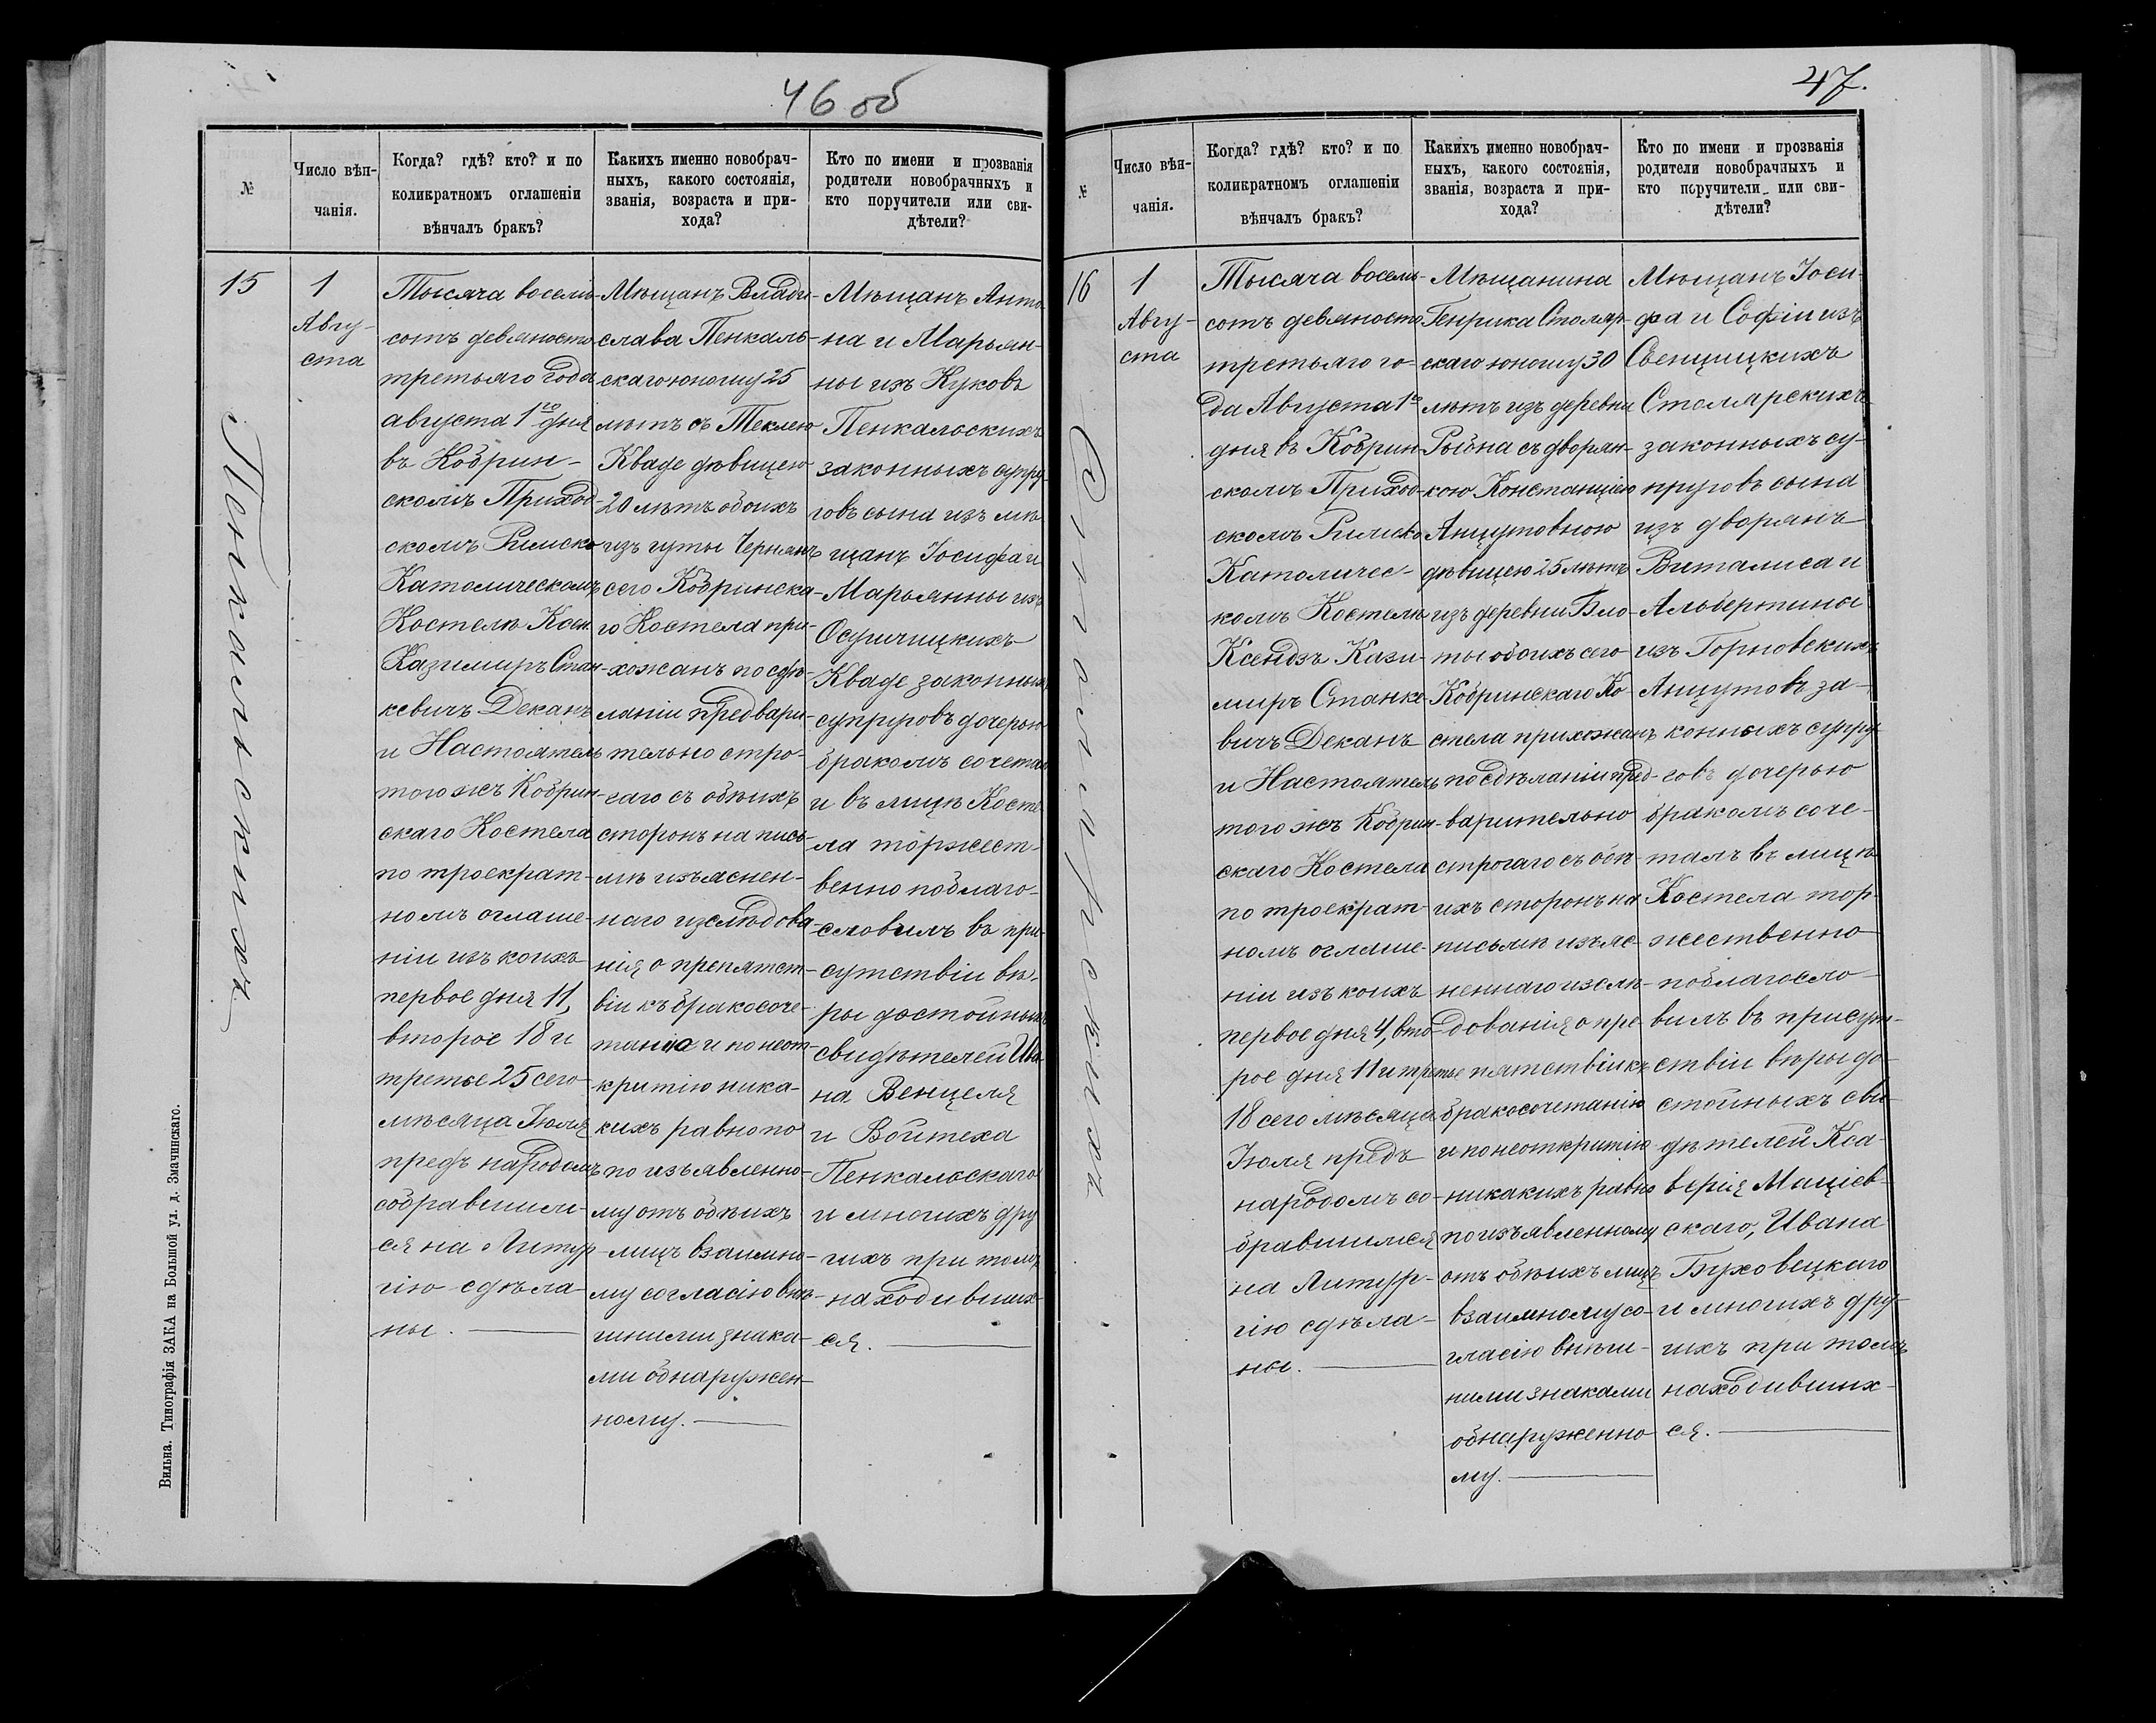 46 об
№
Число вѣн-
чанія.
Когда? гдѣ? кто? и по
коликратномъ оглашеніи
вѣнчалъ бракъ?
Какихъ именно новобрач-
ныхъ, какого состоянія,
званія, возраста и при-
хода?
Кто по имени и прозванія
родители новобрачныхъ и
кто поручители или сви-
дѣтели?
15
1
Авгу-
ста
Тысяча восемь-
сотъ девяносто
третьяго года
августа 1го дня
въ Кобрин-
скомъ Приход-
скомъ Римско
Католическомъ
Костелѣ Ксен.
Казимиръ Стан-
кевичъ Деканъ
и Настоятель
того жъ Кобрин-
скаго Костела
по троекрат-
номъ оглаше-
ніи изъ коихъ
первое дня 11,
второе 18 и
третье 25 сего
мѣсяца Іюля
предъ народомъ
собравшим-
ся на Литур-
гію сдѣла-
ны.
Мѣщанъ Влади-
слава Пенкаль-
скаго юношу 25
лѣтъ съ Теклею
Кваде дѣвицею
20 лѣтъ обоихъ
изъ гуты Чернянъ
сего Кобринска-
го Костела при-
хожанъ по сдѣ-
ланіи предвари-
тельно стро-
гаго съ обѣихъ
сторонъ на пись-
мѣ изъяснен-
наго изслѣдова-
нія о препятст-
віи къ бракосоче-
танію и по неот-
критію ника-
кихъ равно по
по изъявленно-
му отъ обѣихъ
лицъ взаимно-
му согласію внѣ-
шними знака-
ми обнаружен-
ному.
Мѣщанъ Анто-
на и Марьян-
ны изъ Куковъ
Пенкальскихъ
законныхъ супру-
говъ сына изъ мѣ-
щанъ Іосифа и
Марьянны изъ
Осушицкихъ
Кваде законныхъ
супруговъ дочерью
бракомъ сочеталъ
и въ лицѣ Косте-
ла торжест-
венно поблаго-
словилъ въ при-
сутствіи вѣ-
ры достойныхъ
свидѣтелей Ива-
на Венцеля
и Войтеха
Пенкальскаго
и многихъ дру-
гихъ при томъ
находивших-
ся.
Пенкальскихъ
Вильна. Типографія ЗАКА на Большой ул. д. Змачинскаго.
47.
№
Число вѣн-
чанія.
Когда? гдѣ? кто? и по
коликратномъ оглашеніи
вѣнчалъ бракъ?
Какихъ именно новобрач-
ныхъ, какого состоянія,
званія, возраста и при-
хода?
Кто по имени и прозванія
родители новобрачныхъ и
кто поручители или сви-
дѣтели?
16
1
Авгу-
ста
Тысяча восемь-
сотъ девяносто
третьяго го-
да Августа 1го
дня въ Кобрин-
скомъ Приход-
скомъ Римско
Католичес-
комъ Костелѣ
Ксендзъ Кази-
миръ Станке-
вичъ Деканъ
и Настоятель
того жъ Кобрин-
скаго Костела
по троекрат-
номъ оглаше-
ніи изъ коихъ
первое дня 4, вто-
рое дня 11 и третье
18 сего мѣсяца
Іюля предъ
народомъ со-
бравшимся
на Литур-
гію сдѣла-
ны.
Мѣщанина
Генрика Столяр-
скаго юношу 30
лѣтъ изъ деревни
Рыбна съ дворян-
кою Констанціею
Анцутовною
дѣвицею 25 лѣтъ
изъ деревни Бло-
ты обоихъ сего
Кобринскаго Ко-
стела прихожанъ
по сдѣланіи пред-
варительно
строгаго съ обѣ-
ихъ сторонъ на
письмѣ изъяс-
неннаго изслѣ-
дованія о пре-
пятствіи къ
бракосочетанію
и по неоткритію
никакихъ равно
по изъявленному
отъ обѣихъ лицъ
взаимному со-
гласію внѣш-
ними знаками
обнаруженно-
му.
Мѣщанъ Іоси-
фа и Софіи изъ
Свенцицкихъ
Столярскихъ
законныхъ су-
пруговъ сына
изъ дворянъ
Виталиса и
Альбертины
изъ Горновскихъ
Анцутовъ за-
конныхъ супру-
говъ дочерью
бракомъ соче-
талъ въ лицѣ
Костела тор-
жественно
поблагосло-
вилъ въ присут-
ствіи вѣры до-
стойныхъ сви-
дѣтелей Кса-
верія Маціев-
скаго, Ивана
Буховецкаго
и многихъ дру-
гихъ при томъ
находивших-
ся.
Столярскихъ